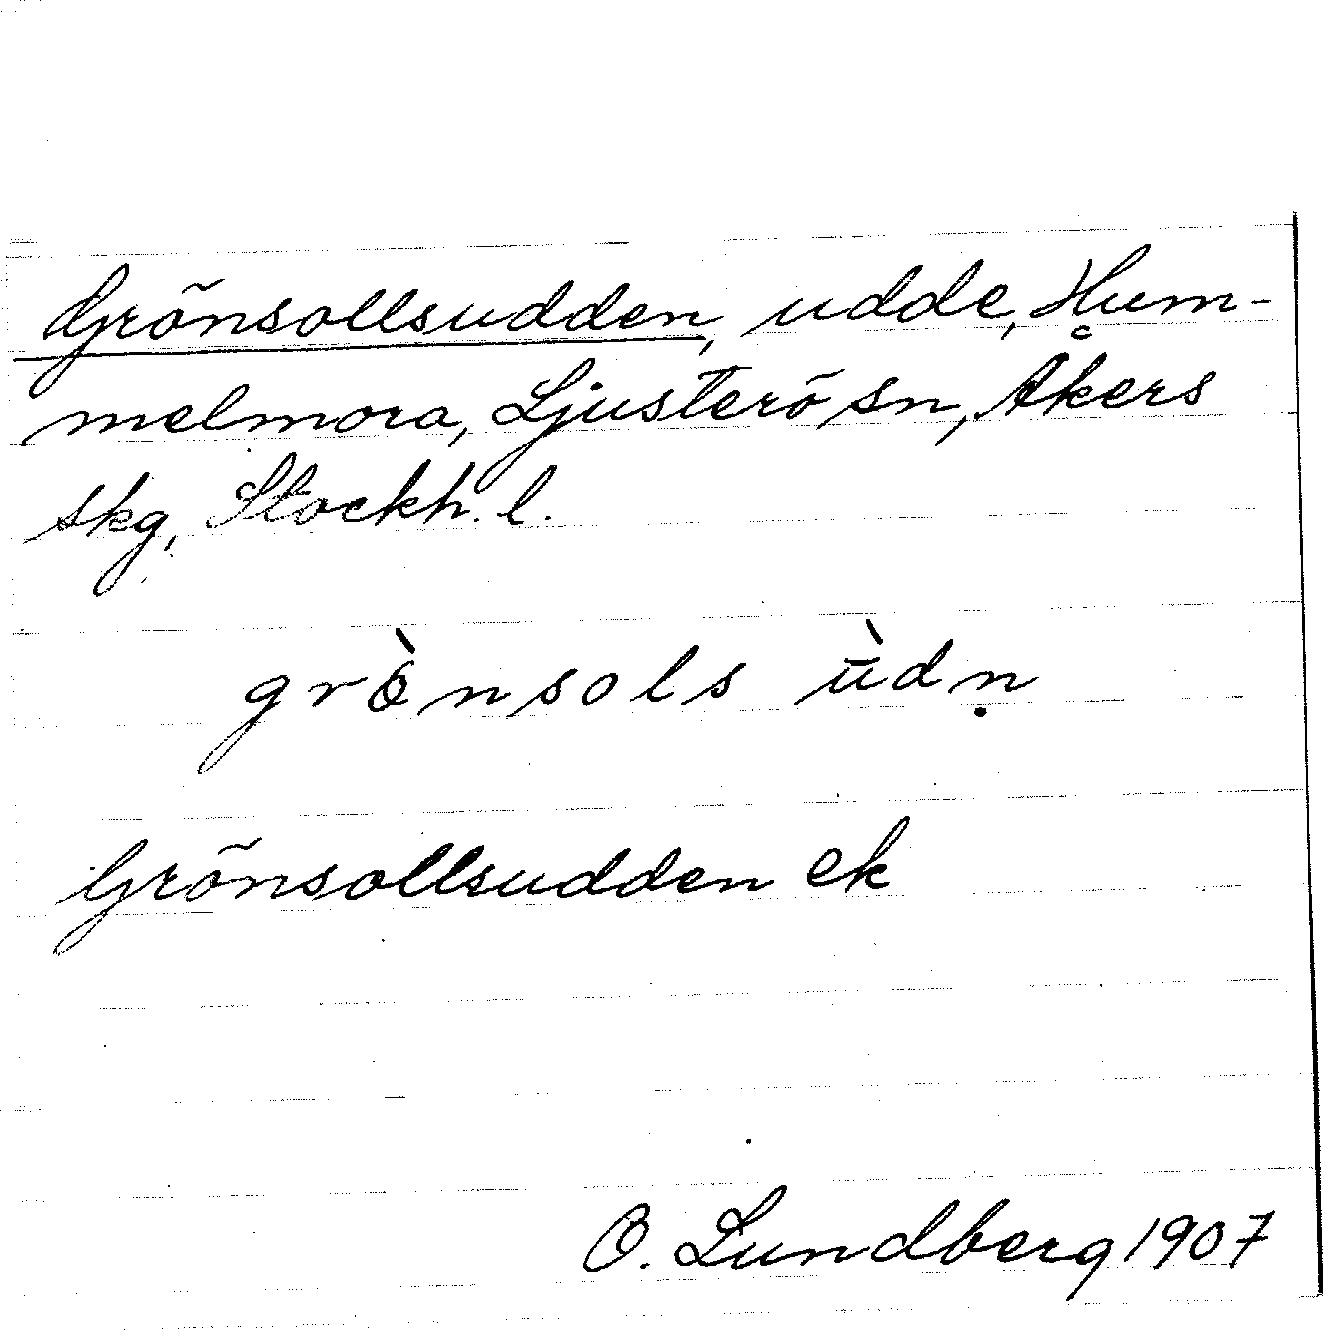 Grönsollsudden, udde, Hum-
melmora, Ljusterö sn, Åkers
skg, Stockh. l.
grò̀nsols ùdṇ
Grönsollsudden ek
O. Lundberg 1907